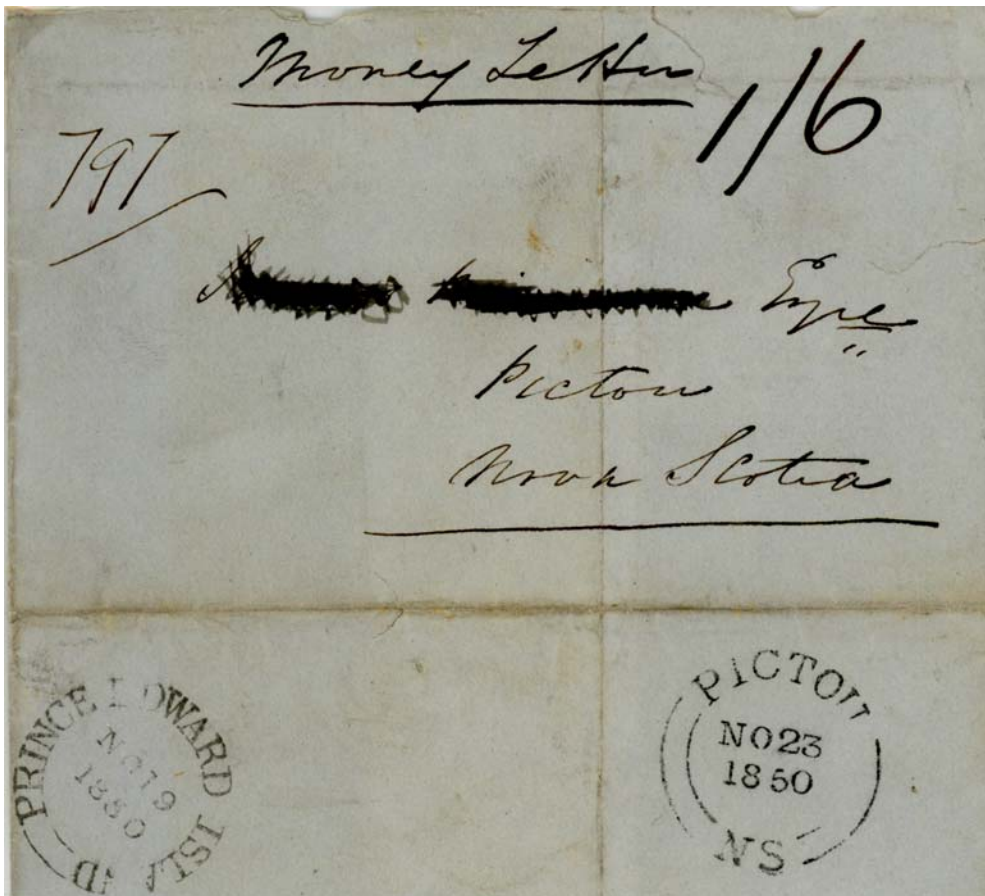 Money Letter
1/6
797
Esqre
Pictou
Nova Scotia
PRINCE EDWARD ISLAND
NO 19
1850
PICTOU
NO 23
1850
NS